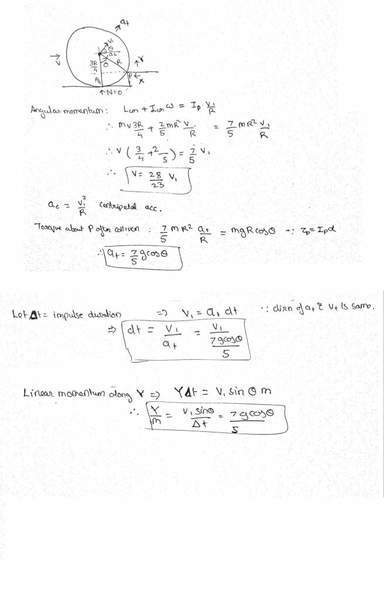 a_t
V
R
3R/4
θ
R
P
Y
X
↑N=0
Angular momentum: L_cm + I_cm ω = I_p v₁/R
∴ mv 3R/4 + 2/5 mR² v/R = 7/5 mR² v₁/R
∴ v ( 3/4 + 2/5 ) = 7/5 v₁
∴ v = 28/23 v₁
a_c = v₁²/R centripetal acc.
Torque about P after collision : 7/5 mR² a_t/R = mgRcosθ ∵ τ_p = I_p α
∴ a_t = 7/5 gcosθ
Let Δt = impulse duration ⇒ v₁ = a_t dt ∵ dirn of a_t & v₁ is same.
⇒ dt = v₁/a_t = v₁/(7gcosθ/5)
Linear momentum along Y ⇒ YΔt = v₁ sin θ m
∴ Y/m = v₁ sinθ/Δt = 7gcosθ/5